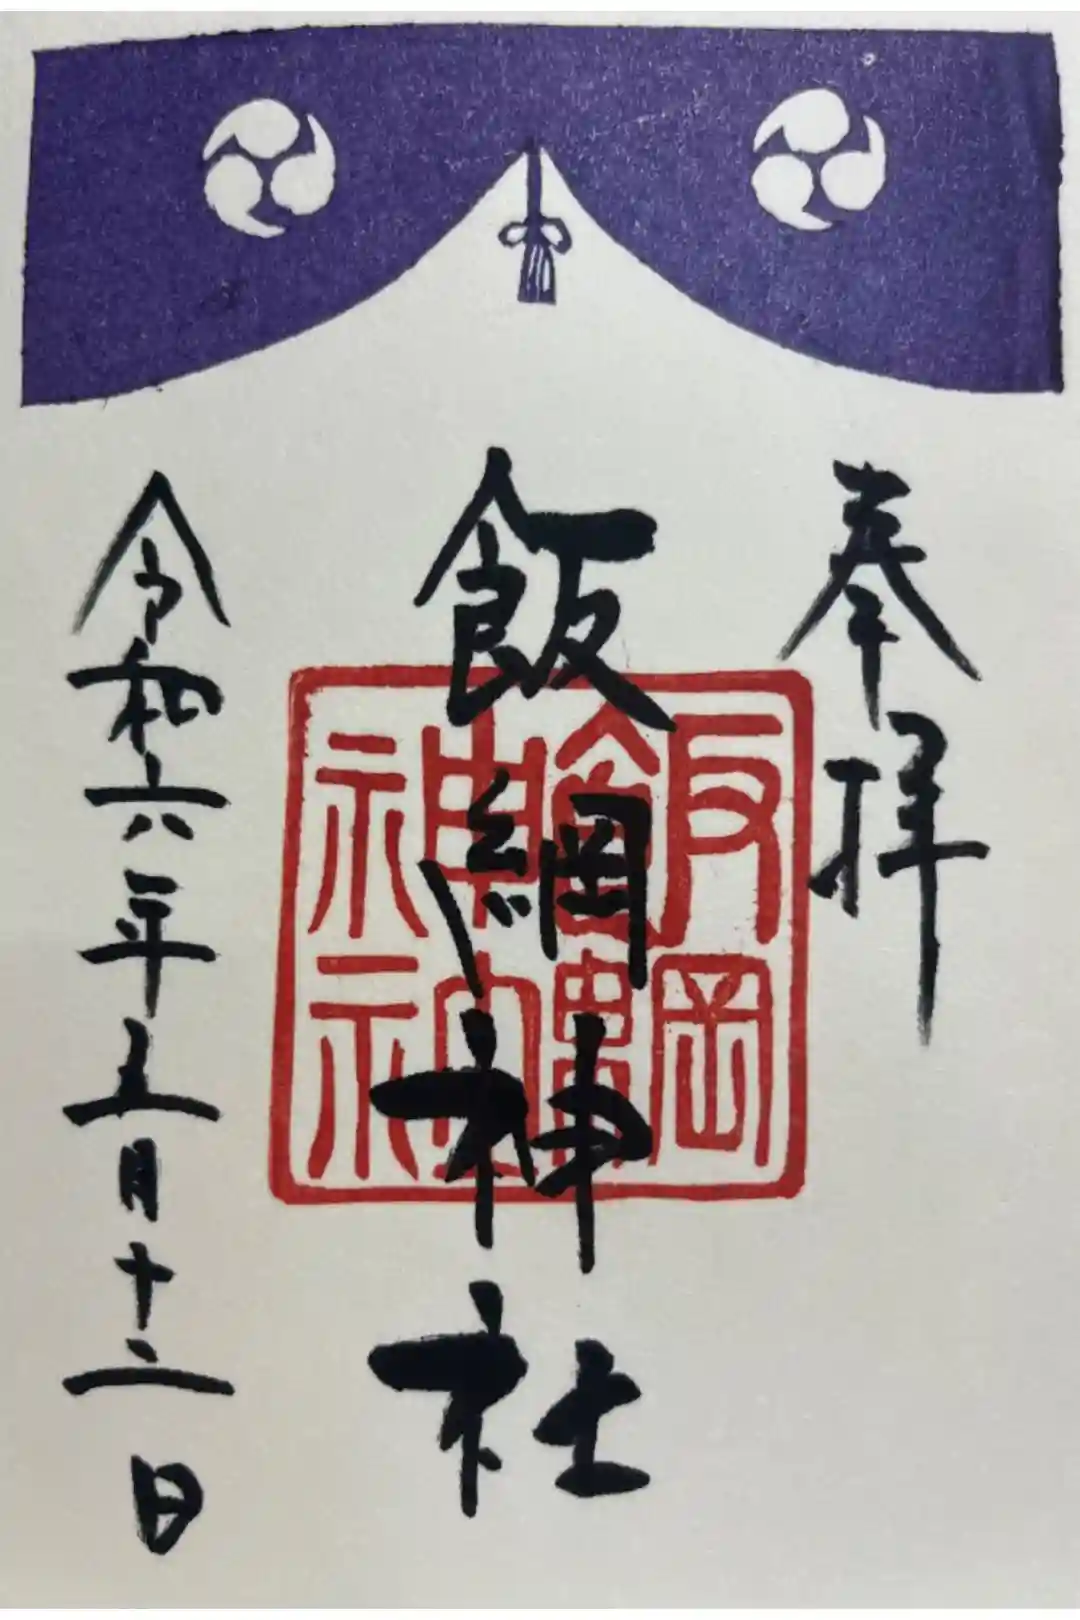 奉拝
飯綱神社
飯綱
神社
令和六年五月十二日